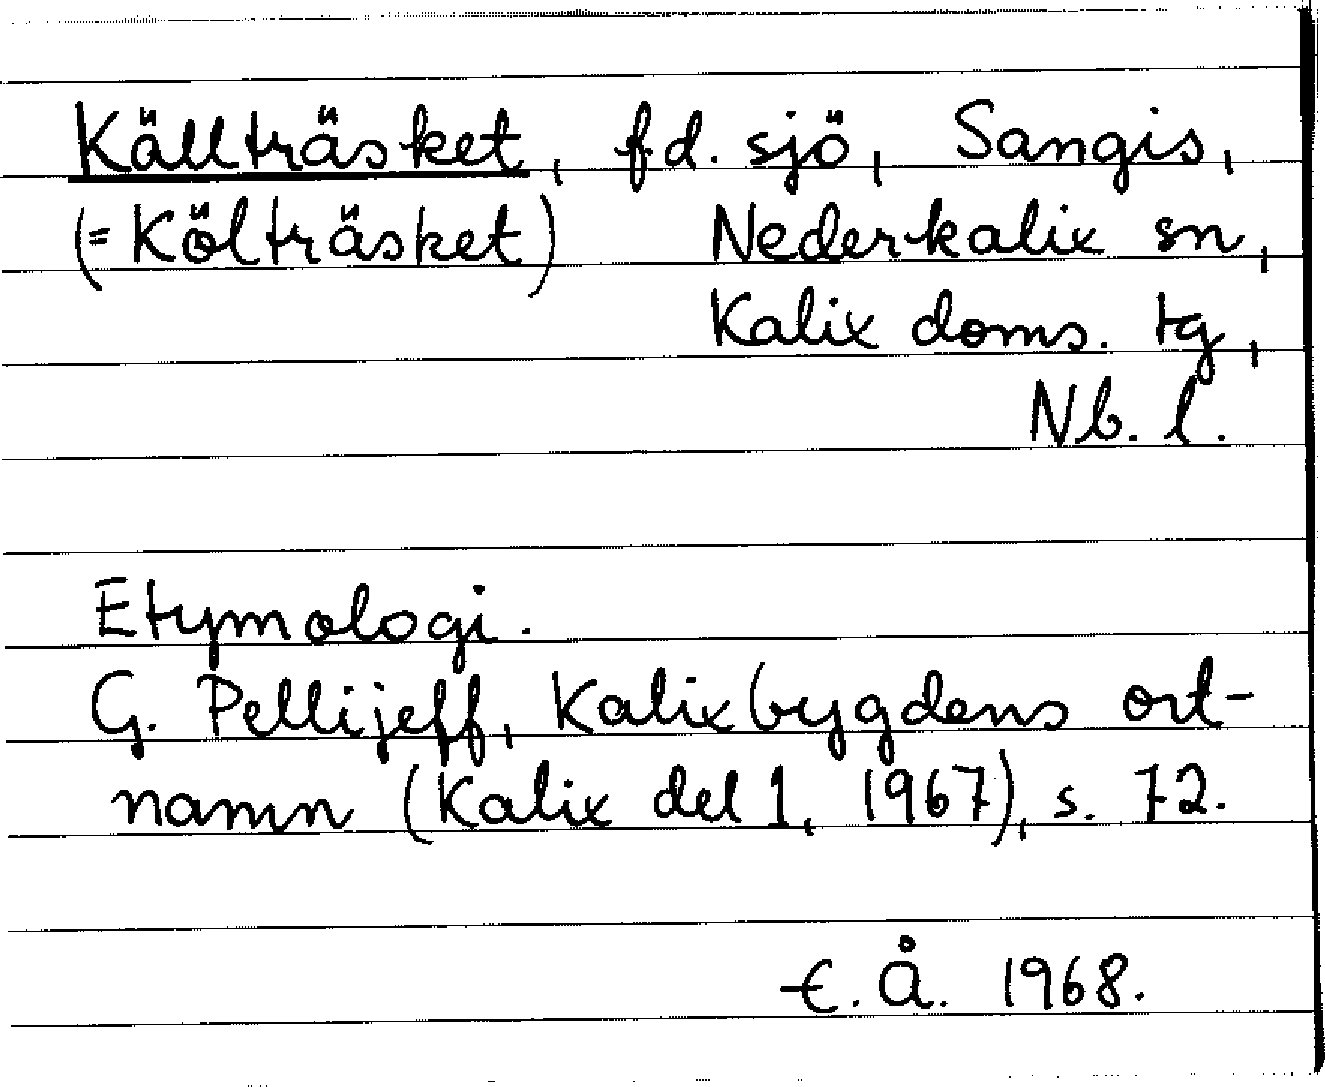 Källträsket, fd. sjö, Sangis,
(= Költräsket) Nederkalix sn,
Kalix doms. tg,
Nb. l.
Etymologi.
G. Pellijeff, Kalixbygdens ort-
namn (Kalix del 1, 1967), s. 72.
E. Å. 1968.